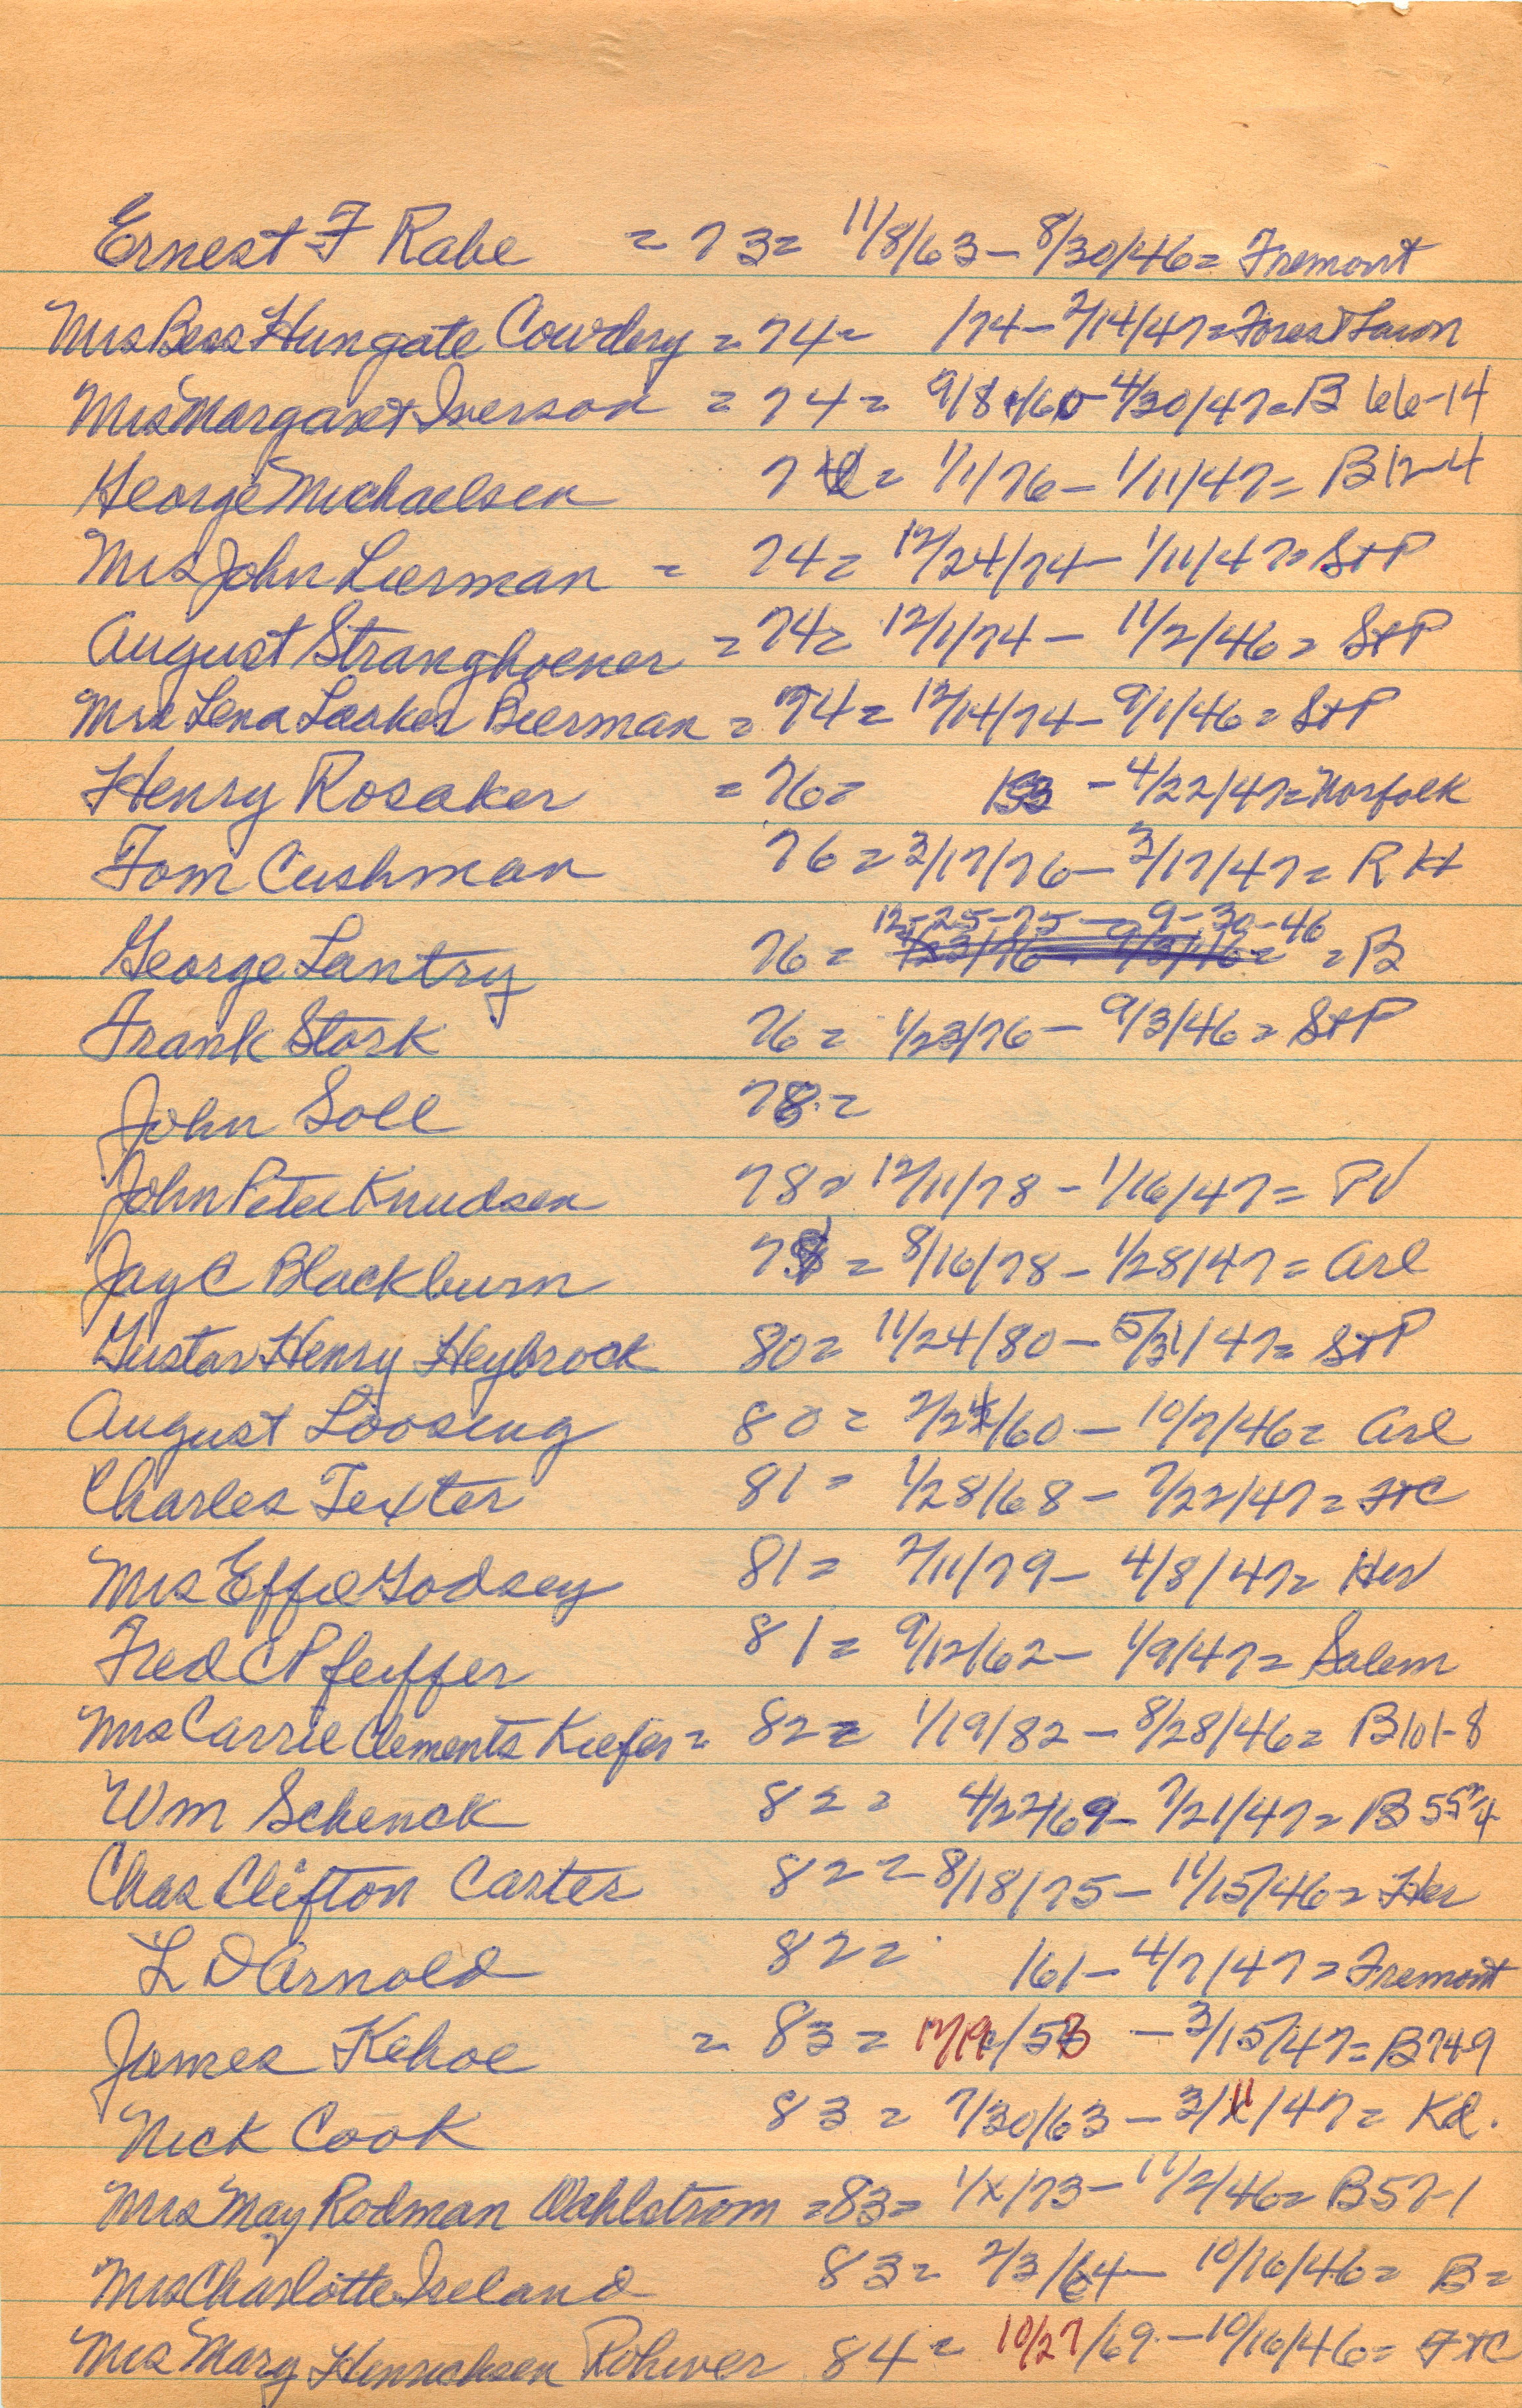 Ernest F Rabe = 73 = 11/8/63 - 8/30/46 = Fremont
Mrs Bess Hungate Cowdery = 74 = /74 - 2/14/47 = Forest Lawn
Mrs Margaret Iverson = 74 = 9/8/60 - 4/30/47 = B 66-14
George Michaelsen 74 = 1/1/76 - 1/11/47 = B 12-4
Mrs John Lierman = 74 = 12/24/74 - 1/11/47 = St P
August Stranghoener = 74 = 12/1/74 - 11/2/46 = St P
Mrs Lena Laaker Bierman = 74 = 12/14/74 - 9/1/46 = St P
Henry Rosaker = 76 = - 4/22/47 = Norfolk
Tom Cushman 76 = 3/17/76 - 3/17/47 = R H
12-25-75 - 9-30-46
George Lantry 76 = = B
Frank Stork 76 = 1/23/76 - 9/3/46 = St P
John Soll 78 =
John Peter Knudsen 78 = 12/11/78 - 1/16/47 = PV
Jay C Blackburn 78 = 8/16/78 - 1/28/47 = Arl
Gustav Henry Heybrock 80 = 11/24/80 - 5/31/47 = St P
August Loosing 80 = 2/24/60 - 10/7/46 = Arl
Charles Texter 81 = 1/28/68 - 7/22/47 = Ft C
Mrs Effie Godsey 81 = 2/11/79 - 4/8/47 = Her
Fred C Pfeiffer 81 = 9/12/62 - 1/9/47 = Salem
Mrs Carrie Clements Kiefer = 82 = 1/19/82 - 8/28/46 = B 101-8
Wm Schenck 82 = 4/22/69 - 7/21/47 = B 55
Chas Clifton Carter 82 = 8/18/75 - 11/15/46 = Her
L D Arnold 82 = /61 - 4/7/47 = Fremont
James Kehoe = 83 = - 3/15/47 = B 74-9
Nick Cook 83 = 7/30/63 - 3/11/47 = Kd.
Mrs May Rodman Wahlstrom = 83 = /73 - 11/2/46 = B 57-1
Mrs Charlotte Ireland 83 = 2/3/64 - 10/16/46 = B =
Mrs Mary Hinrichsen Rohwer 84 = 10/27/69 - 10/16/46 = Ft C